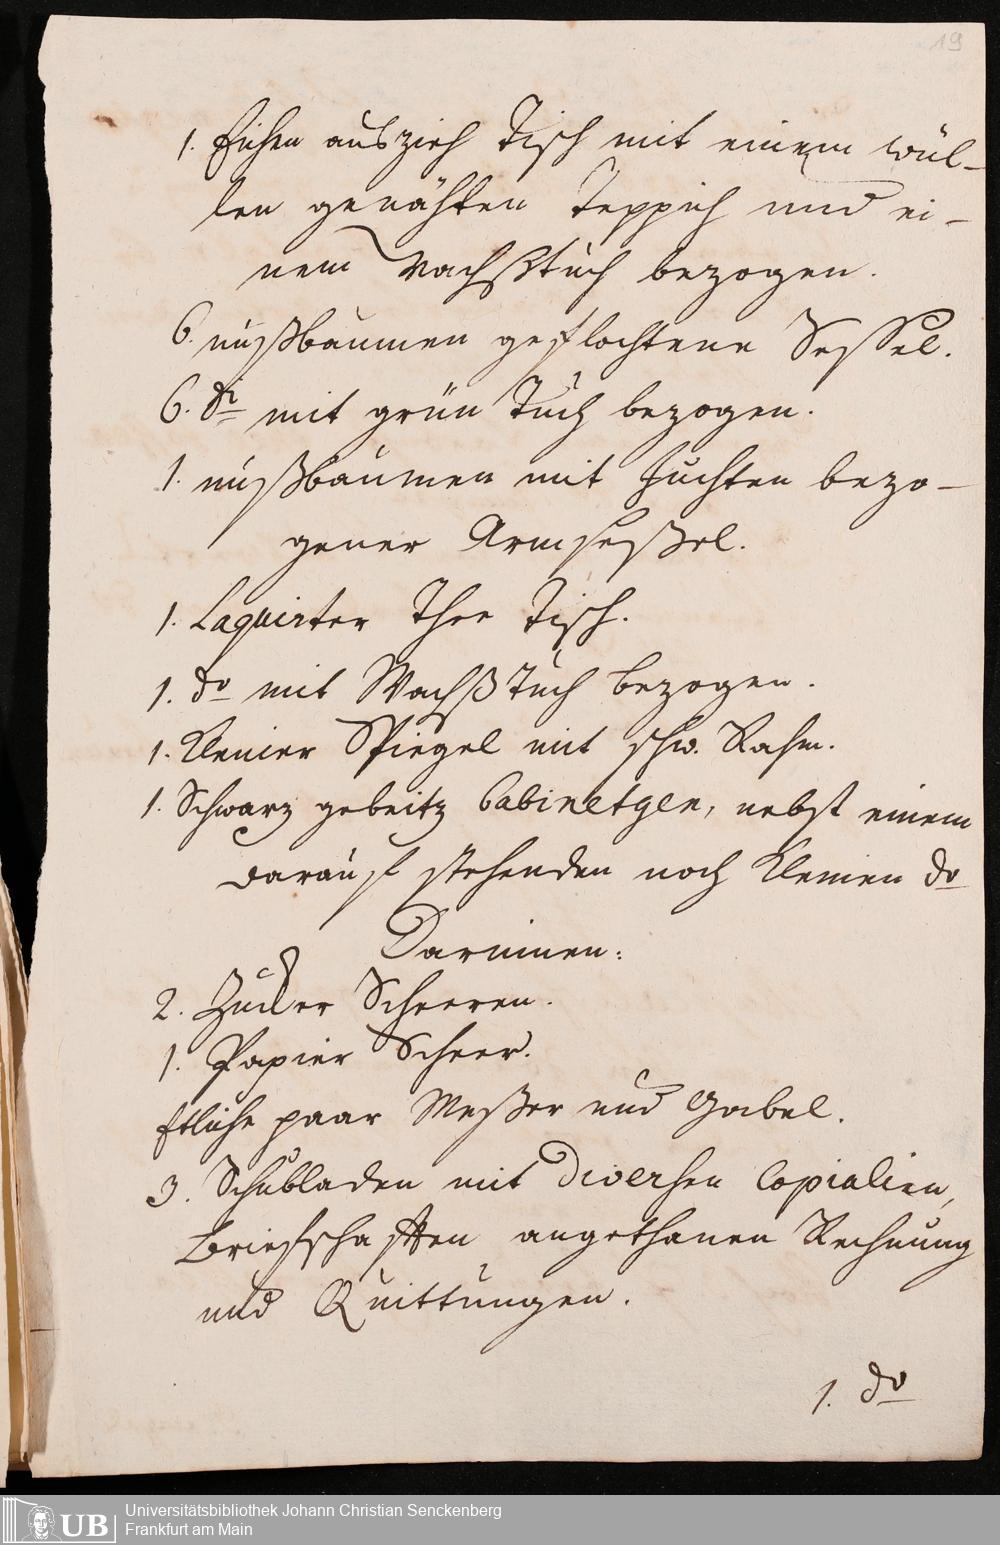 19
1. Eichen auszieh Tisch mit einem wül-
len genähten Teppich und ei-
nem Wachßtuch bezogen.
6. nußbaumen geflochtene Seßel.
6. di mit grün Tuch bezogen.
1. nußbaumen mit Juchten bezo-
gener Armseßel.
1. Laquirter Thee Tisch.
1. do mit Wachßtuch bezogen.
1. kleiner Spiegel mit schw. Rahm.
1. Schwarz gebeitz Cabinetgen, nebst einem
darauf stehenden noch kleinen do
Darinnen:
2. Zucker Scheeren.
1. Papier Scheer.
Etliche paar Meßer und Gabel.
3. Schubladen mit diversen Copialien,
Briefschafften angethanen Rechnung
und Quittungen.
1. do
UB
Universitätsbibliothek Johann Christian Senckenberg
Frankfurt am Main